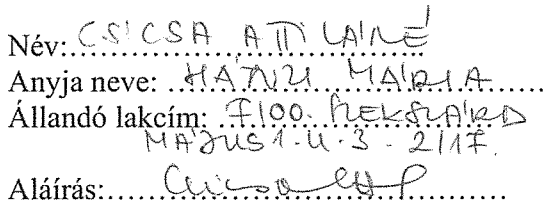 Név: CSICSA ATTILÁNÉ
Anyja neve: MÁRIA
Állandó lakcím: 7100. SZEKSZÁRD
MÁJUS 1. U. 3. 2/17.
Aláírás: